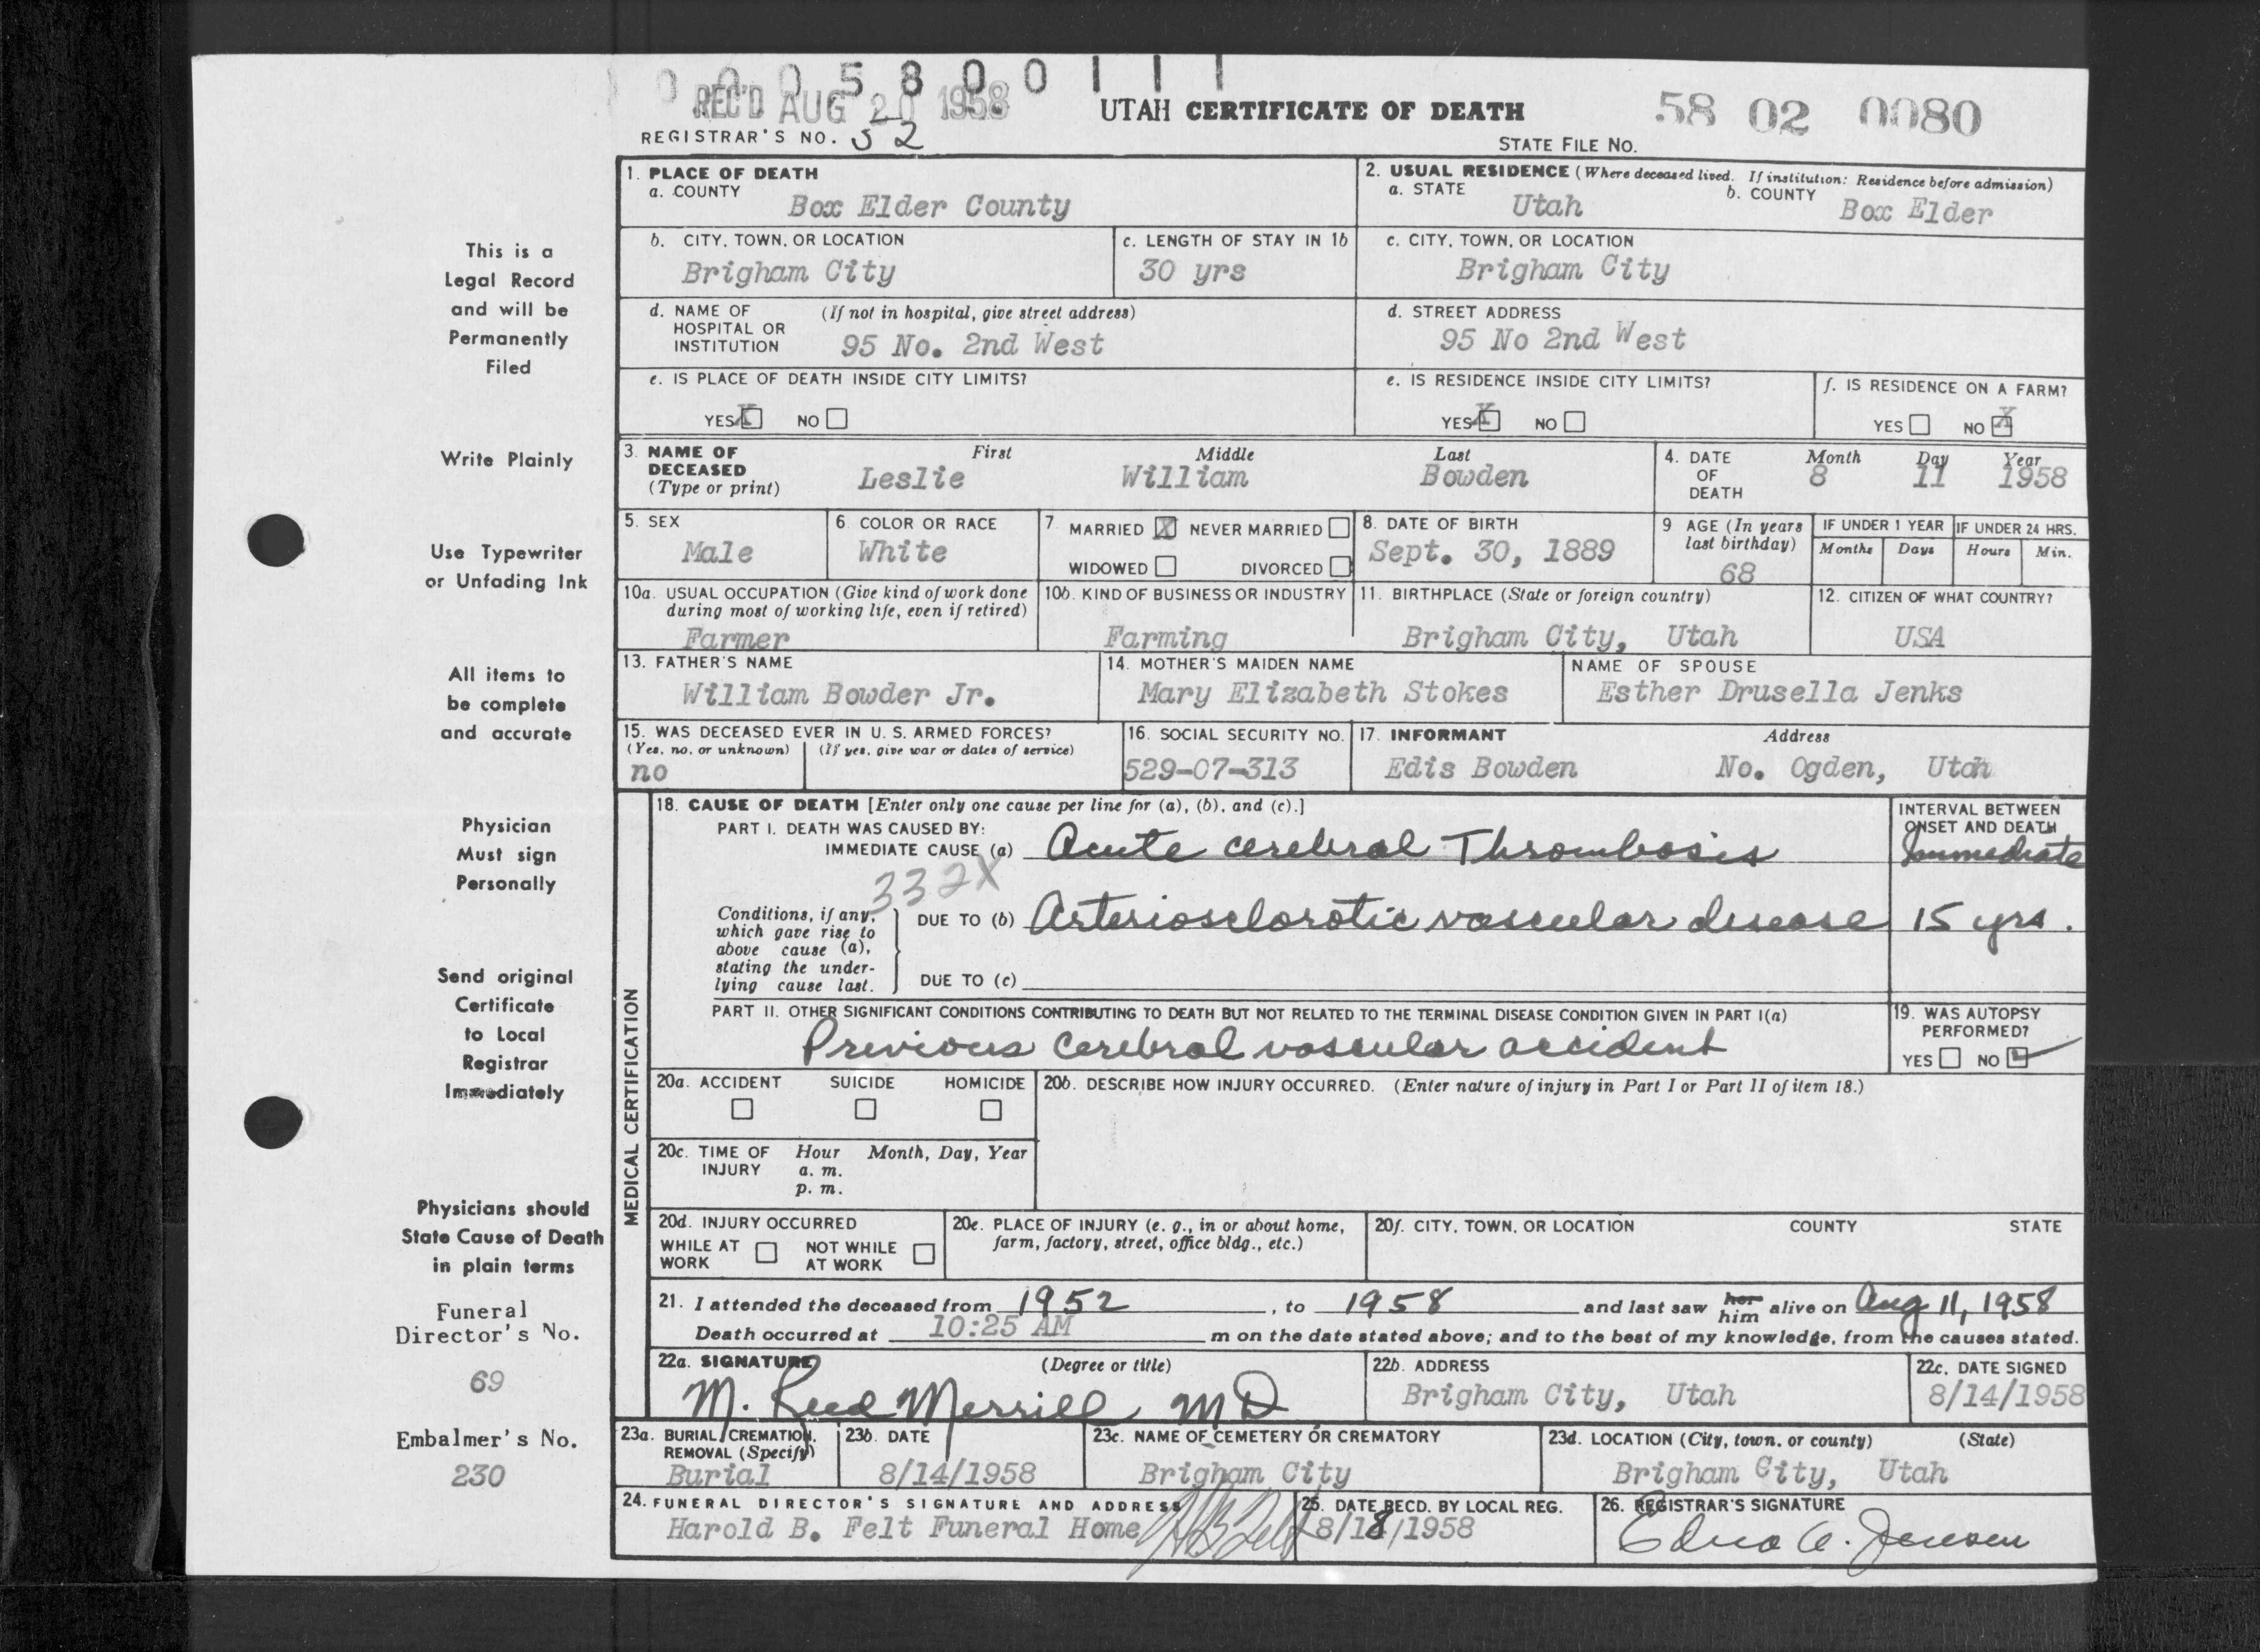 0 0 0 5 8 0 0 1 1 1
REC'D AUG 20 1958
UTAH CERTIFICATE OF DEATH
58 02 0080
REGISTRAR'S NO. 52
STATE FILE No.
1. PLACE OF DEATH
a. COUNTY
Box Elder County
2. USUAL RESIDENCE (Where deceased lived. If institution: Residence before admission)
a. STATE
Utah
b. COUNTY
Box Elder
b. CITY, TOWN, OR LOCATION
Brigham City
c. LENGTH OF STAY IN 1b
30 yrs
c. CITY, TOWN, OR LOCATION
Brigham City
d. NAME OF HOSPITAL OR INSTITUTION
(If not in hospital, give street address)
95 No. 2nd West
d. STREET ADDRESS
95 No 2nd West
e. IS PLACE OF DEATH INSIDE CITY LIMITS?
YES X NO
e. IS RESIDENCE INSIDE CITY LIMITS?
YES X NO
f. IS RESIDENCE ON A FARM?
YES NO X
3. NAME OF DECEASED (Type or print)
First Middle Last
Leslie William Bowden
4. DATE OF DEATH
Month Day Year
8 11 1958
5. SEX
Male
6. COLOR OR RACE
White
7. MARRIED X NEVER MARRIED
WIDOWED DIVORCED
8. DATE OF BIRTH
Sept. 30, 1889
9 AGE (In years last birthday)
68
IF UNDER 1 YEAR
Months Days
IF UNDER 24 HRS.
Hours Min.
10a. USUAL OCCUPATION (Give kind of work done during most of working life, even if retired)
Farmer
10b. KIND OF BUSINESS OR INDUSTRY
Farming
11. BIRTHPLACE (State or foreign country)
Brigham City, Utah
12. CITIZEN OF WHAT COUNTRY?
USA
13. FATHER'S NAME
William Bowder Jr.
14. MOTHER'S MAIDEN NAME
Mary Elizabeth Stokes
NAME OF SPOUSE
Esther Drusella Jenks
15. WAS DECEASED EVER IN U. S. ARMED FORCES?
(Yes, no, or unknown) (If yes, give war or dates of service)
no
16. SOCIAL SECURITY NO.
529-07-313
17. INFORMANT Address
Edis Bowden No. Ogden, Utah
MEDICAL CERTIFICATION
18. CAUSE OF DEATH [Enter only one cause per line for (a), (b), and (c).]
INTERVAL BETWEEN ONSET AND DEATH
PART I. DEATH WAS CAUSED BY:
IMMEDIATE CAUSE (a) Acute cerebral Thrombosis
Immediate
332X
Conditions, if any,
which gave rise to
above cause (a),
stating the under-
lying cause last.
DUE TO (b) Arteriosclorotic vascular disease
15 yrs.
DUE TO (c)
PART II. OTHER SIGNIFICANT CONDITIONS CONTRIBUTING TO DEATH BUT NOT RELATED TO THE TERMINAL DISEASE CONDITION GIVEN IN PART I(a)
Previous cerebral vascular accident
19. WAS AUTOPSY PERFORMED?
YES NO ✓
20a. ACCIDENT SUICIDE HOMICIDE
20b. DESCRIBE HOW INJURY OCCURRED. (Enter nature of injury in Part I or Part II of item 18.)
20c. TIME OF INJURY
Hour Month, Day, Year
a. m.
p. m.
20d. INJURY OCCURRED
WHILE AT WORK NOT WHILE AT WORK
20e. PLACE OF INJURY (e. g., in or about home, farm, factory, street, office bldg., etc.)
20f. CITY, TOWN, OR LOCATION COUNTY STATE
21. I attended the deceased from 1952, to 1958 and last saw her him alive on Aug 11, 1958
Death occurred at 10:25 AM m on the date stated above; and to the best of my knowledge, from the causes stated.
22a. SIGNATURE (Degree or title)
M. Reed Merrill MD
22b. ADDRESS
Brigham City, Utah
22c. DATE SIGNED
8/14/1958
23a. BURIAL, CREMATION, REMOVAL (Specify)
Burial
23b. DATE
8/14/1958
23c. NAME OF CEMETERY OR CREMATORY
Brigham City
23d. LOCATION (City, town, or county) (State)
Brigham City, Utah
24. FUNERAL DIRECTOR'S SIGNATURE AND ADDRESS
Harold B. Felt Funeral Home HB Felt
25. DATE RECD. BY LOCAL REG.
8/18/1958
26. REGISTRAR'S SIGNATURE
Edna A. Jensen
This is a
Legal Record
and will be
Permanently
Filed
Write Plainly
Use Typewriter
or Unfading Ink
All items to
be complete
and accurate
Physician
Must sign
Personally
Send original
Certificate
to Local
Registrar
Immediately
Physicians should
State Cause of Death
in plain terms
Funeral
Director's No.
69
Embalmer's No.
230